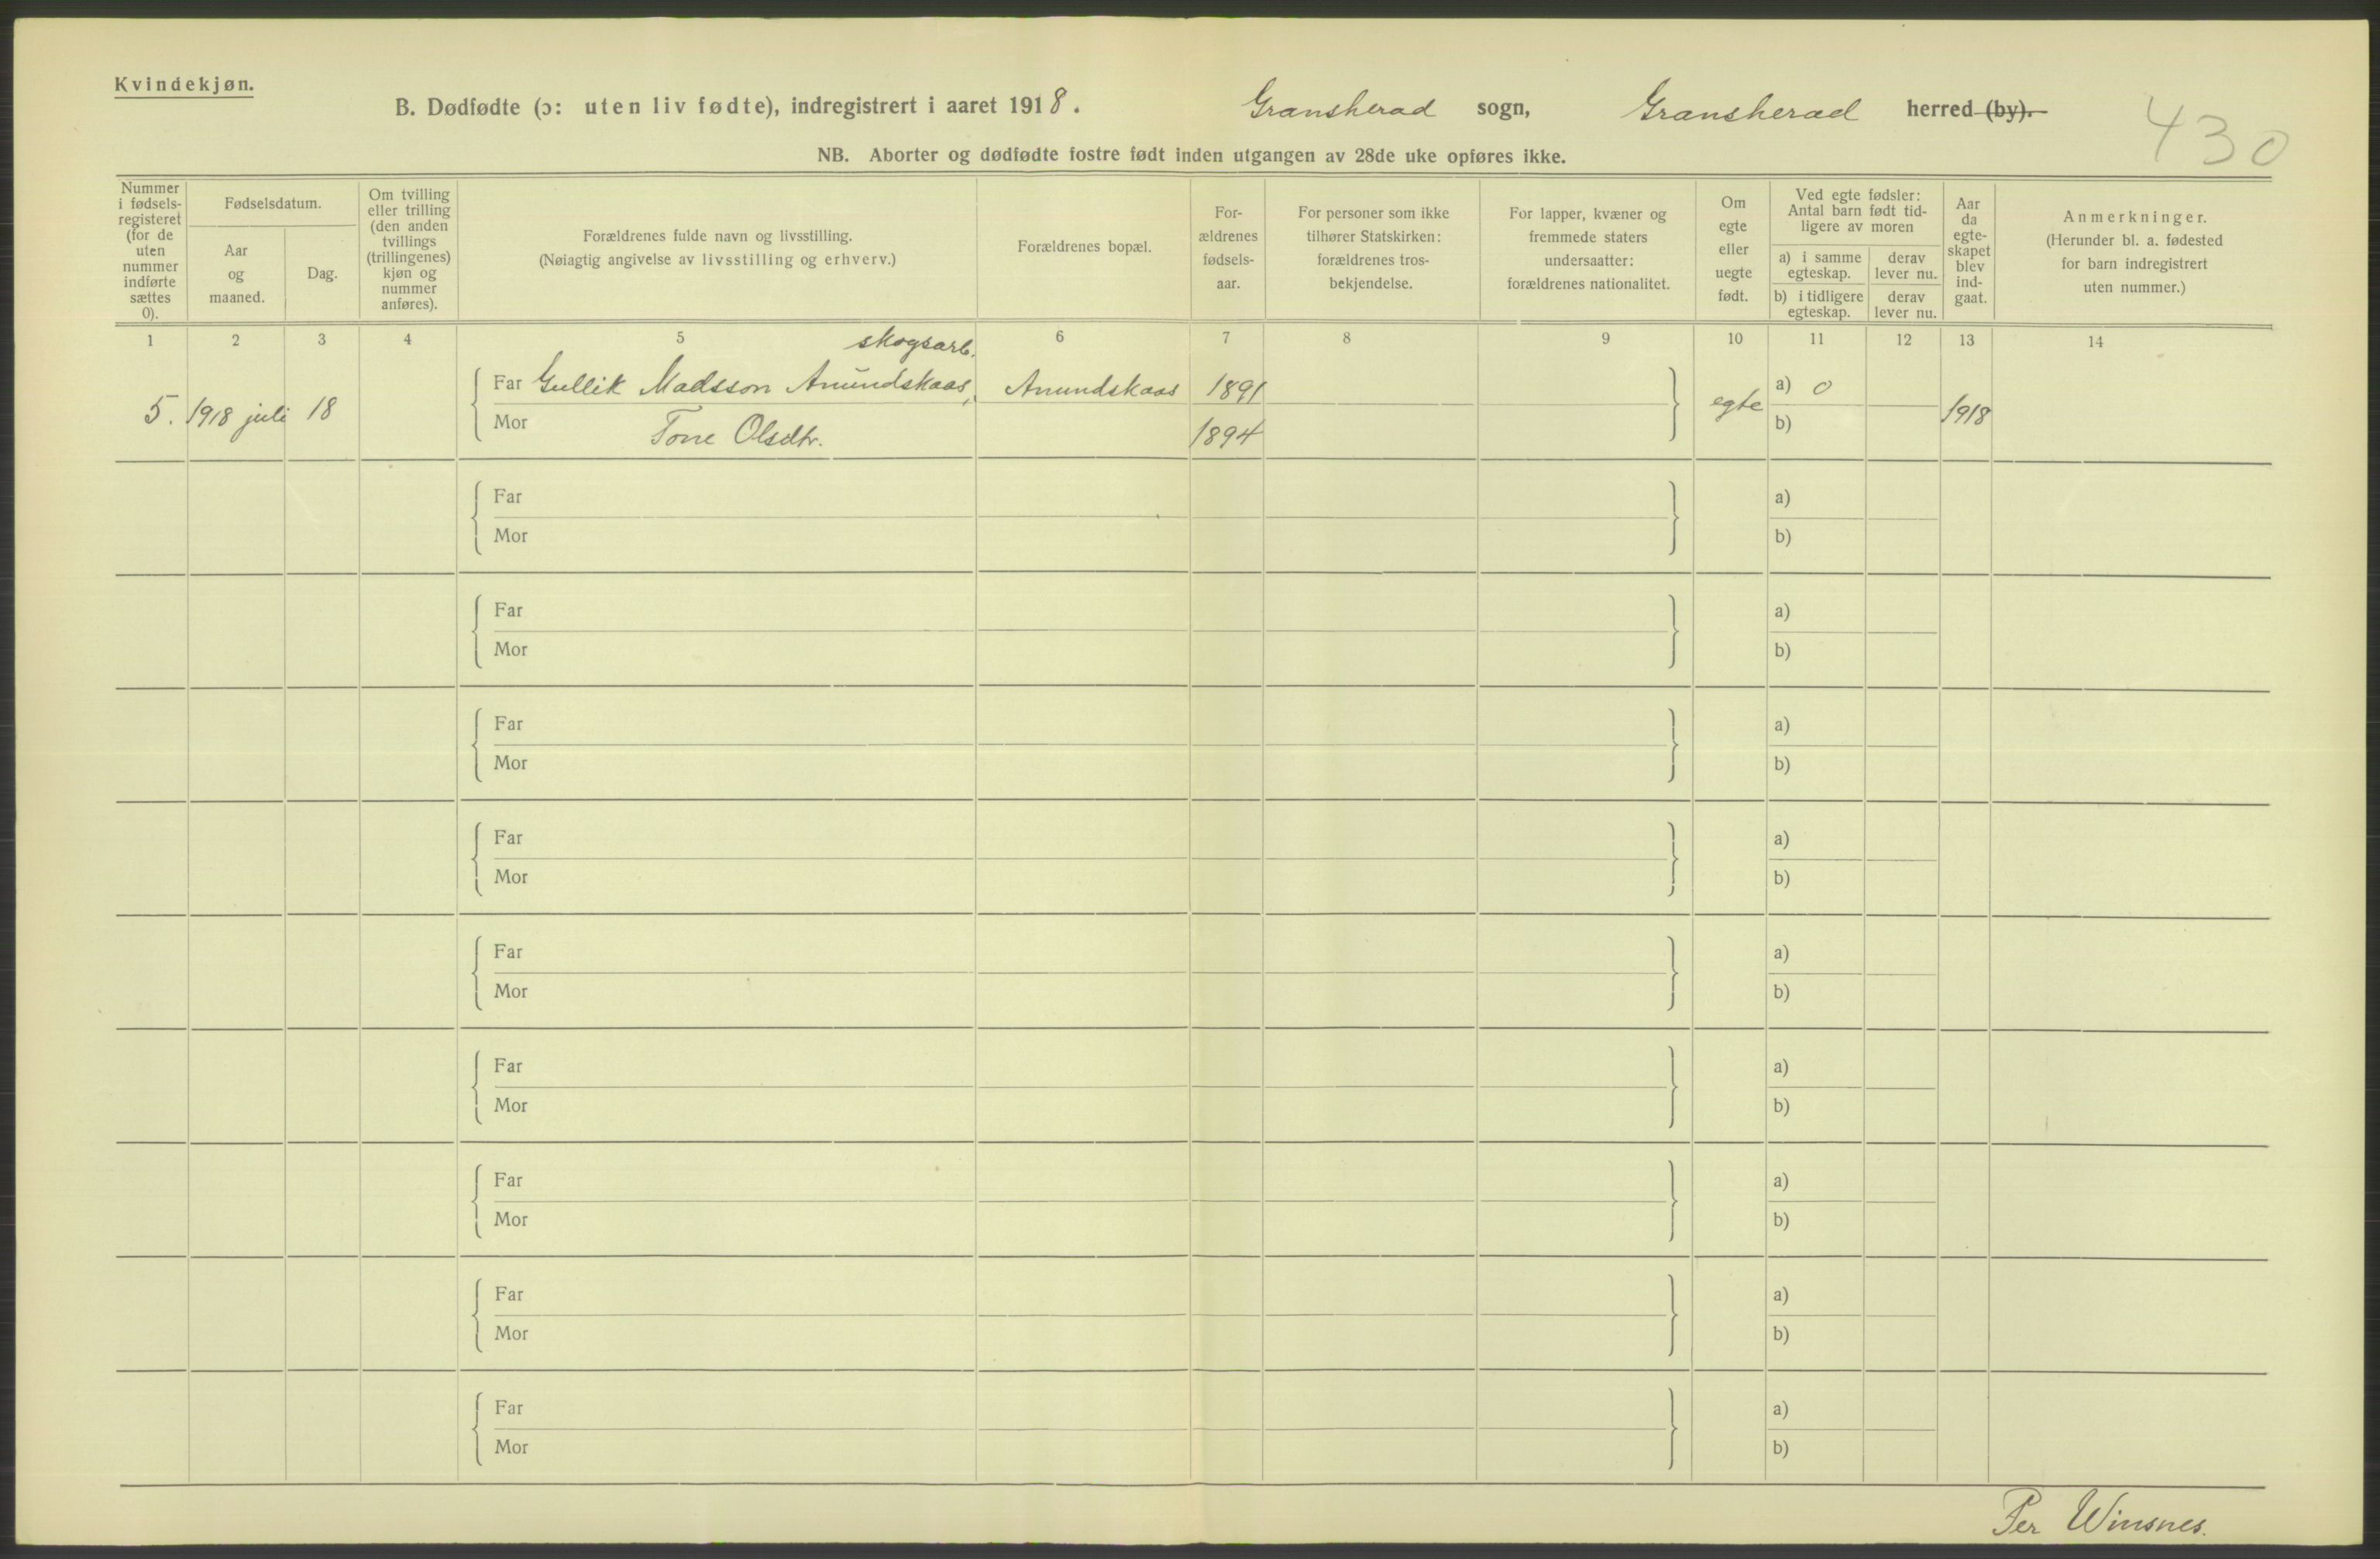 Kvindekjøn.
B. Dødfødte (ɔ: uten liv fødte), indregistrert i aaret 1918. Gransherad sogn, Gransherad herred (by).
430
NB. Aborter og dødfødte fostre født inden utgangen av 28de uke opføres ikke.
Nummer
i fødsels-
registeret
(for de
uten
nummer
indførte
sættes
0).
Fødselsdatum.
Aar
og
maaned.
Dag.
Om tvilling
eller trilling
(den anden
tvillings
(trillingenes)
kjøn og
nummer
anføres).
Forældrenes fulde navn og livsstilling.
(Nøiagtig angivelse av livsstilling og erhverv.)
Forældrenes bopæl.
For-
ældrenes
fødsels-
aar.
For personer som ikke
tilhører Statskirken:
forældrenes tros-
bekjendelse.
For lapper, kvæner og
fremmede staters
undersaatter:
forældrenes nationalitet.
Om
egte
eller
uegte
født.
Ved egte fødsler:
Antal barn født tid-
ligere av moren
a) i samme
egteskap.
derav
lever nu.
b) i tidligere
egteskap.
derav
lever nu.
Aar
da
egte-
skapet
blev
ind-
gaat.
Anmerkninger.
(Herunder bl. a. fødested
for barn indregistrert
uten nummer.)
1 2 3 4 5 6 7 8 9 10 11 12 13 14
skogsarb.
5. 1918 juli 18 Far Gullik Madsson Amundskaas, Amundskaas 1891 egte a) 0 1918
Mor Tone Olsdtr. 1894 b)
Far a)
Mor b)
Far a)
Mor b)
Far a)
Mor b)
Far a)
Mor b)
Far a)
Mor b)
Far a)
Mor b)
Far a)
Mor b)
Far a)
Mor b)
Far a)
Mor b)
Per Winsnes.